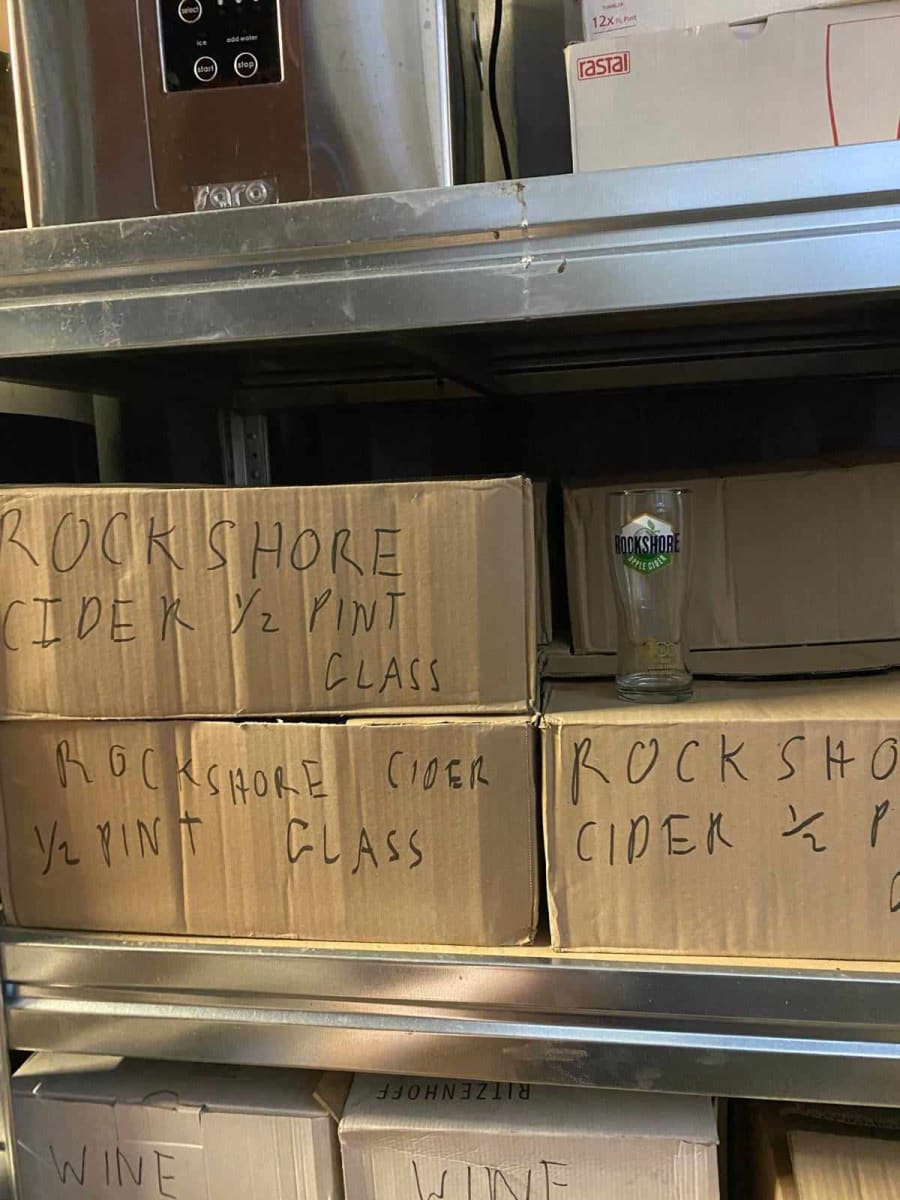 select
ice add water
start stop
saro
TUMBLER
12x ½ Pint
rastal
ROCKSHORE
CIDER 1/2 PINT
GLASS
ROCKSHORE
APPLE CIDER
ROCKSHORE CIDER
1/2 PINT GLASS
ROCKSHO
CIDER 1/2 P
RITZENHOFF
WINE
WINE